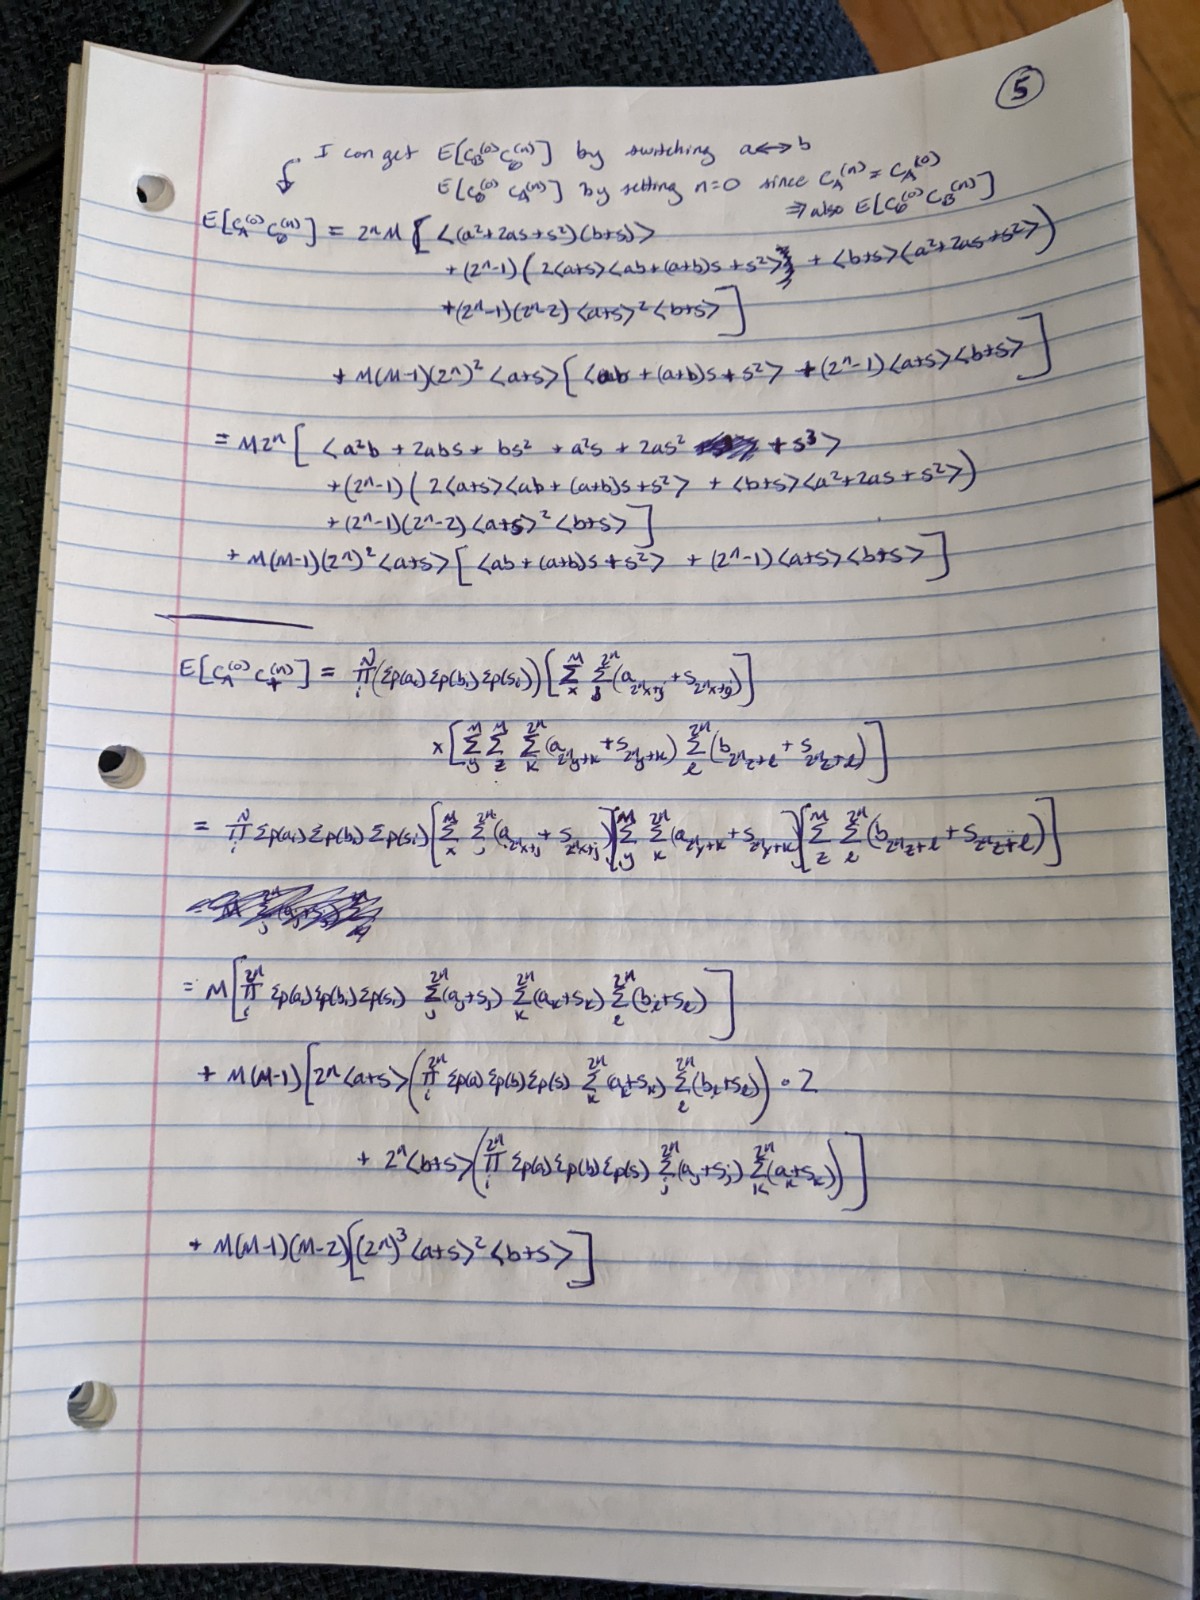 ⑤
I can get E[C_B^(0) C_δ^(n)] by switching a↔b
E[C_δ^(0) C_A^(n)] by setting n=0 since C_A^(n) = C_A^(0)
⇒ also E[C_δ^(0) C_B^(n)]
E[C_A^(0) C_δ^(n)] = 2^n M [ <(a²+2as+s²)(b+s)>
+ (2^n-1)( 2<a+s><ab+(a+b)s+s²> + <b+s><a²+2as+s²>)
+(2^n-1)(2^n-2) <a+s>²<b+s> ]
+ M(M-1)(2^n)² <a+s>[ <ab + (a+b)s + s²> + (2^n-1)<a+s><b+s> ]
= M2^n [ <a²b + 2abs + bs² + a²s + 2as² + s³>
+(2^n-1)( 2<a+s><ab + (a+b)s+s²> + <b+s><a²+2as+s²>)
+ (2^n-1)(2^n-2) <a+s>²<b+s> ]
+ M(M-1)(2^n)² <a+s>[ <ab + (a+b)s + s²> + (2^n-1)<a+s><b+s> ]
E[C_A^(0) C_+^(n)] = Π_i^N (Σp(a_i) Σp(b_i) Σp(s_i)) [ Σ_x^M Σ_j^{2^n} (a_{2^n x+j} + s_{2^n x+j}) ]
× [ Σ_y^M Σ_z^M Σ_k^{2^n} (a_{2^n y+k} + s_{2^n y+k}) Σ_ℓ^{2^n} (b_{2^n z+ℓ} + s_{2^n z+ℓ}) ]
= Π_i^N Σp(a_i) Σp(b_i) Σp(s_i) [ Σ_x^M Σ_j^{2^n} (a_{2^n x+j} + s_{2^n x+j}) ][ Σ_y^M Σ_k^{2^n} (a_{2^n y+k} + s_{2^n y+k}) ][ Σ_z^M Σ_ℓ^{2^n} (b_{2^n z+ℓ} + s_{2^n z+ℓ}) ]
= M [ Π_i^{2^n} Σp(a_i) Σp(b_i) Σp(s_i) Σ_j^{2^n} (a_j+s_j) Σ_k^{2^n} (a_k+s_k) Σ_ℓ^{2^n} (b_ℓ+s_ℓ) ]
+ M(M-1) [ 2^n <a+s> ( Π_i^{2^n} Σp(a) Σp(b) Σp(s) Σ_k^{2^n} (a_k+s_k) Σ_ℓ^{2^n} (b_ℓ+s_ℓ) ) • 2
+ 2^n <b+s> ( Π_i^{2^n} Σp(a) Σp(b) Σp(s) Σ_j^{2^n} (a_j+s_j) Σ_k^{2^n} (a_k+s_k) ) ]
+ M(M-1)(M-2) [ (2^n)³ <a+s>² <b+s> ]